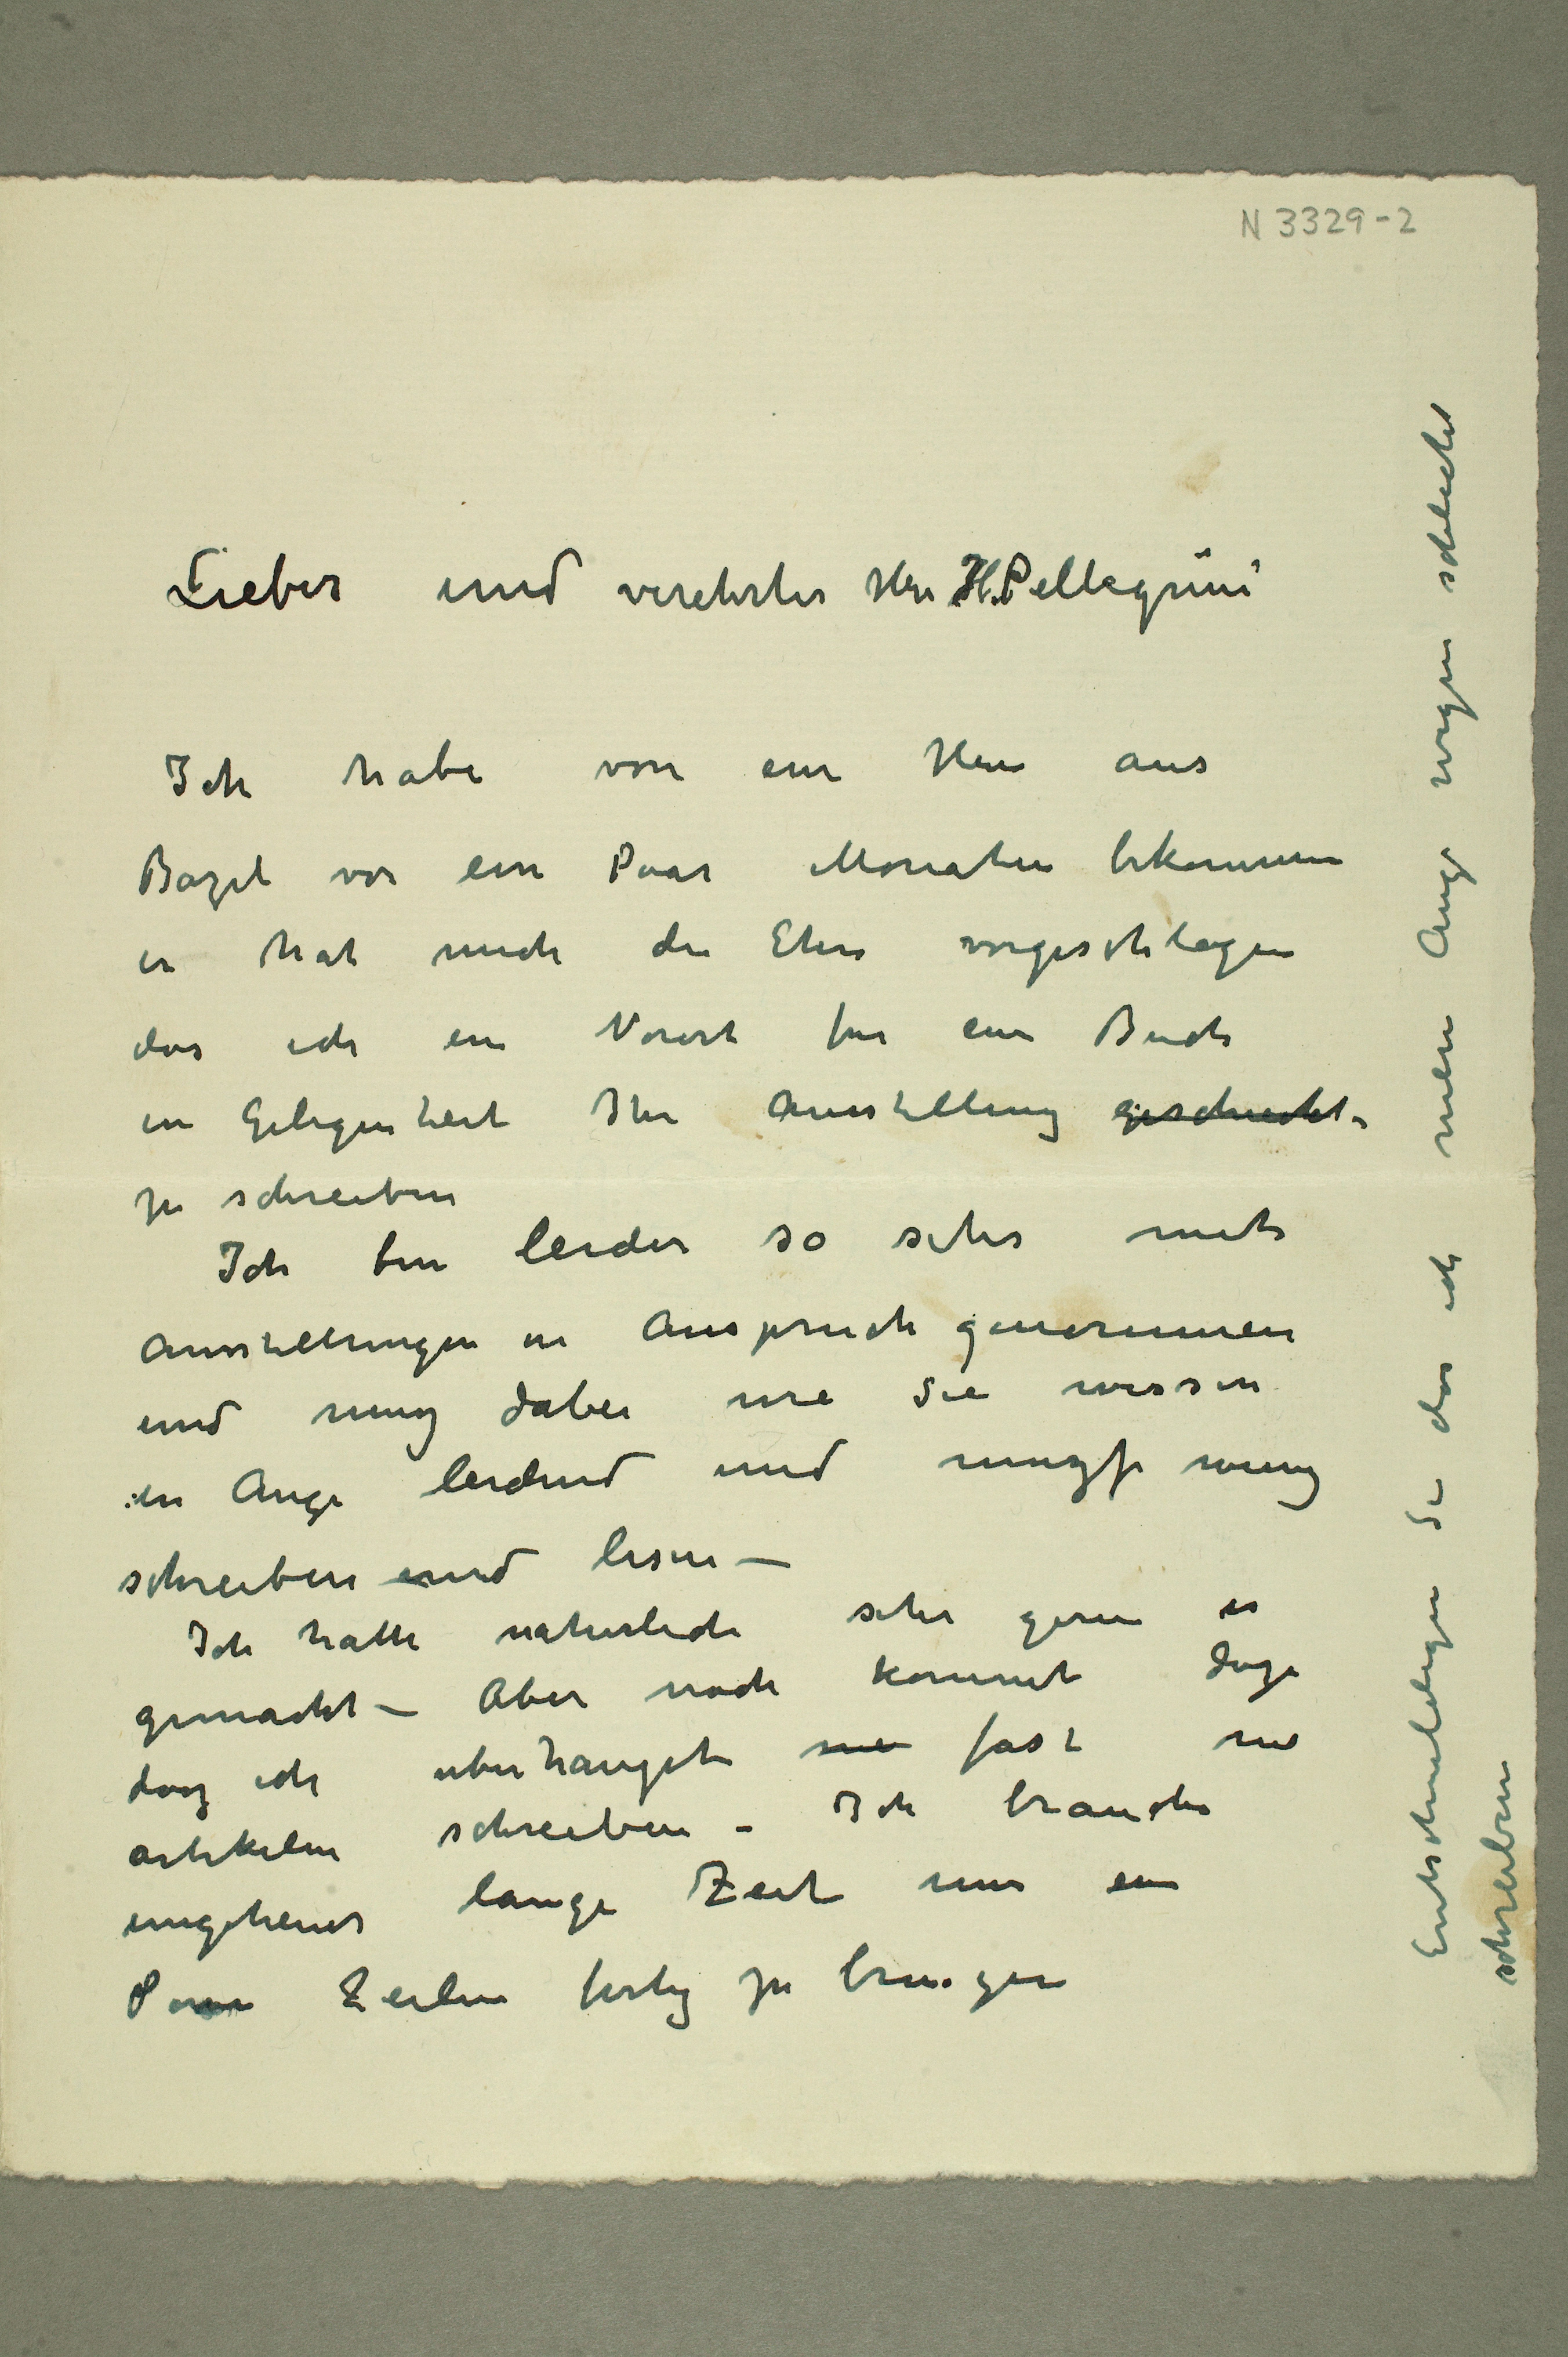 N 3329-2
Lieber und verehrter Herr H. Pellegrini
Ich habe von ein Herr aus
Bazel vor ein Paar Monaten bekommen
er hat mich die Ehre vorgeschlagen
das ich ein Vorort für ein Buch
in Gelegenheit Ihr Ausstellung geschrieht
zu schreiben
Ich bin leider so sehr mit
Ausstellungen in Anspruch genommen
und nung dabei wie Sie wissen
in Auge leidend und muz wenig
schreiben und lesen –
Ich hätte naturlich sehr gerne es
gemacht – Aber noch kommt dazu
daz ich uberhaupt fast nie
artikeln schreiben – Ich brauche
ungeheuer lange Zeit nur ein
Paar Zeilen fertig zu bringen
Entschuldigen Sie das ich mein Auge wegen schlecht
schreiben